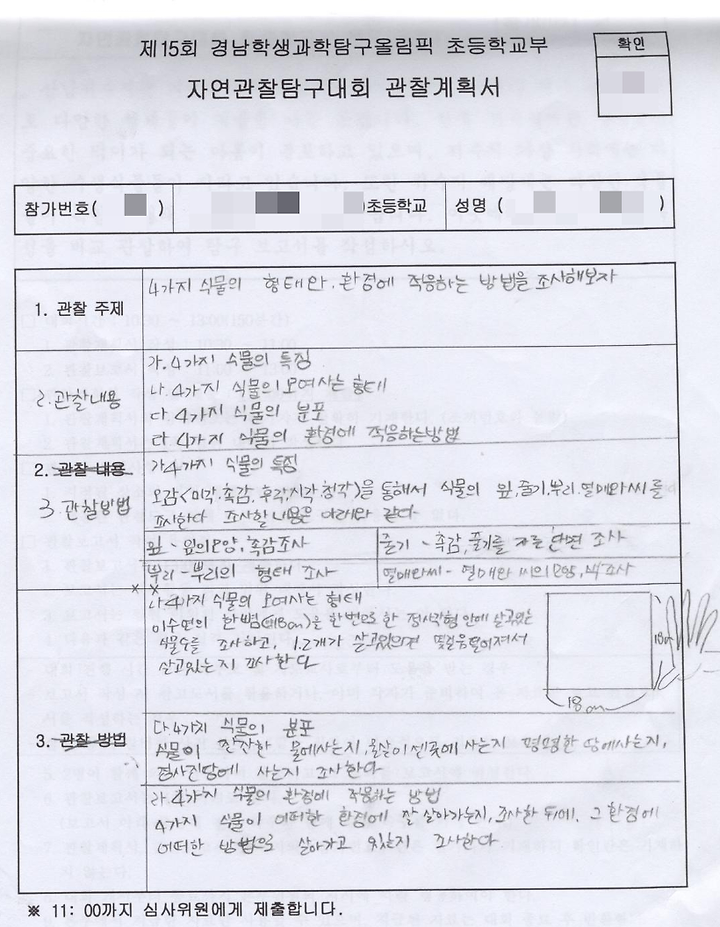 제15회 경남학생과학탐구올림픽 초등학교부
확인
자연관찰탐구대회 관찰계획서
참가번호( )
초등학교
성명 ( )
1. 관찰 주제
4가지 식물의 형태와 환경에 적응하는 방법을 조사해보자
2. 관찰내용
가. 4가지 식물의 특징
나. 4가지 식물의 모여사는 형태
다. 4가지 식물의 분포
라. 4가지 식물의 환경에 적응하는방법
2. 관찰 내용
3. 관찰방법
가 4가지 식물의 특징
오감(미각,촉감,후각,시각,청각)을 통해서 식물의 잎,줄기,뿌리.열매와씨를
조사한다 조사할 내용은 아래와 같다
잎 - 잎의모양, 촉감조사
줄기 - 촉감, 줄기를 자른 단면 조사
뿌리 - 뿌리의 형태 조사
열매와씨 - 열매와 씨의모양, 조사
나 4가지 식물의 모여사는 형태
한뼘 은 한변으로 한 정사각형 안에 살고있는
식물수를 조사하고, 1,2개가 살고있으면 떨어져서
살고있는지 조사한다
18cm
18cm
3. 관찰 방법
다. 4가지 식물의 분포
식물이 잔잔한 물에사는지, 사는지 평평한 땅에사는지,
경사진땅에 사는지 조사한다
라. 4가지 식물의 환경에 적응하는 방법
4가지 식물이 어떠한 환경에 잘 살아가는지, 조사한 뒤에, 그 환경에
어떠한 방법으로 살아가고 있는지 조사한다
※ 11: 00까지 심사위원에게 제출합니다.